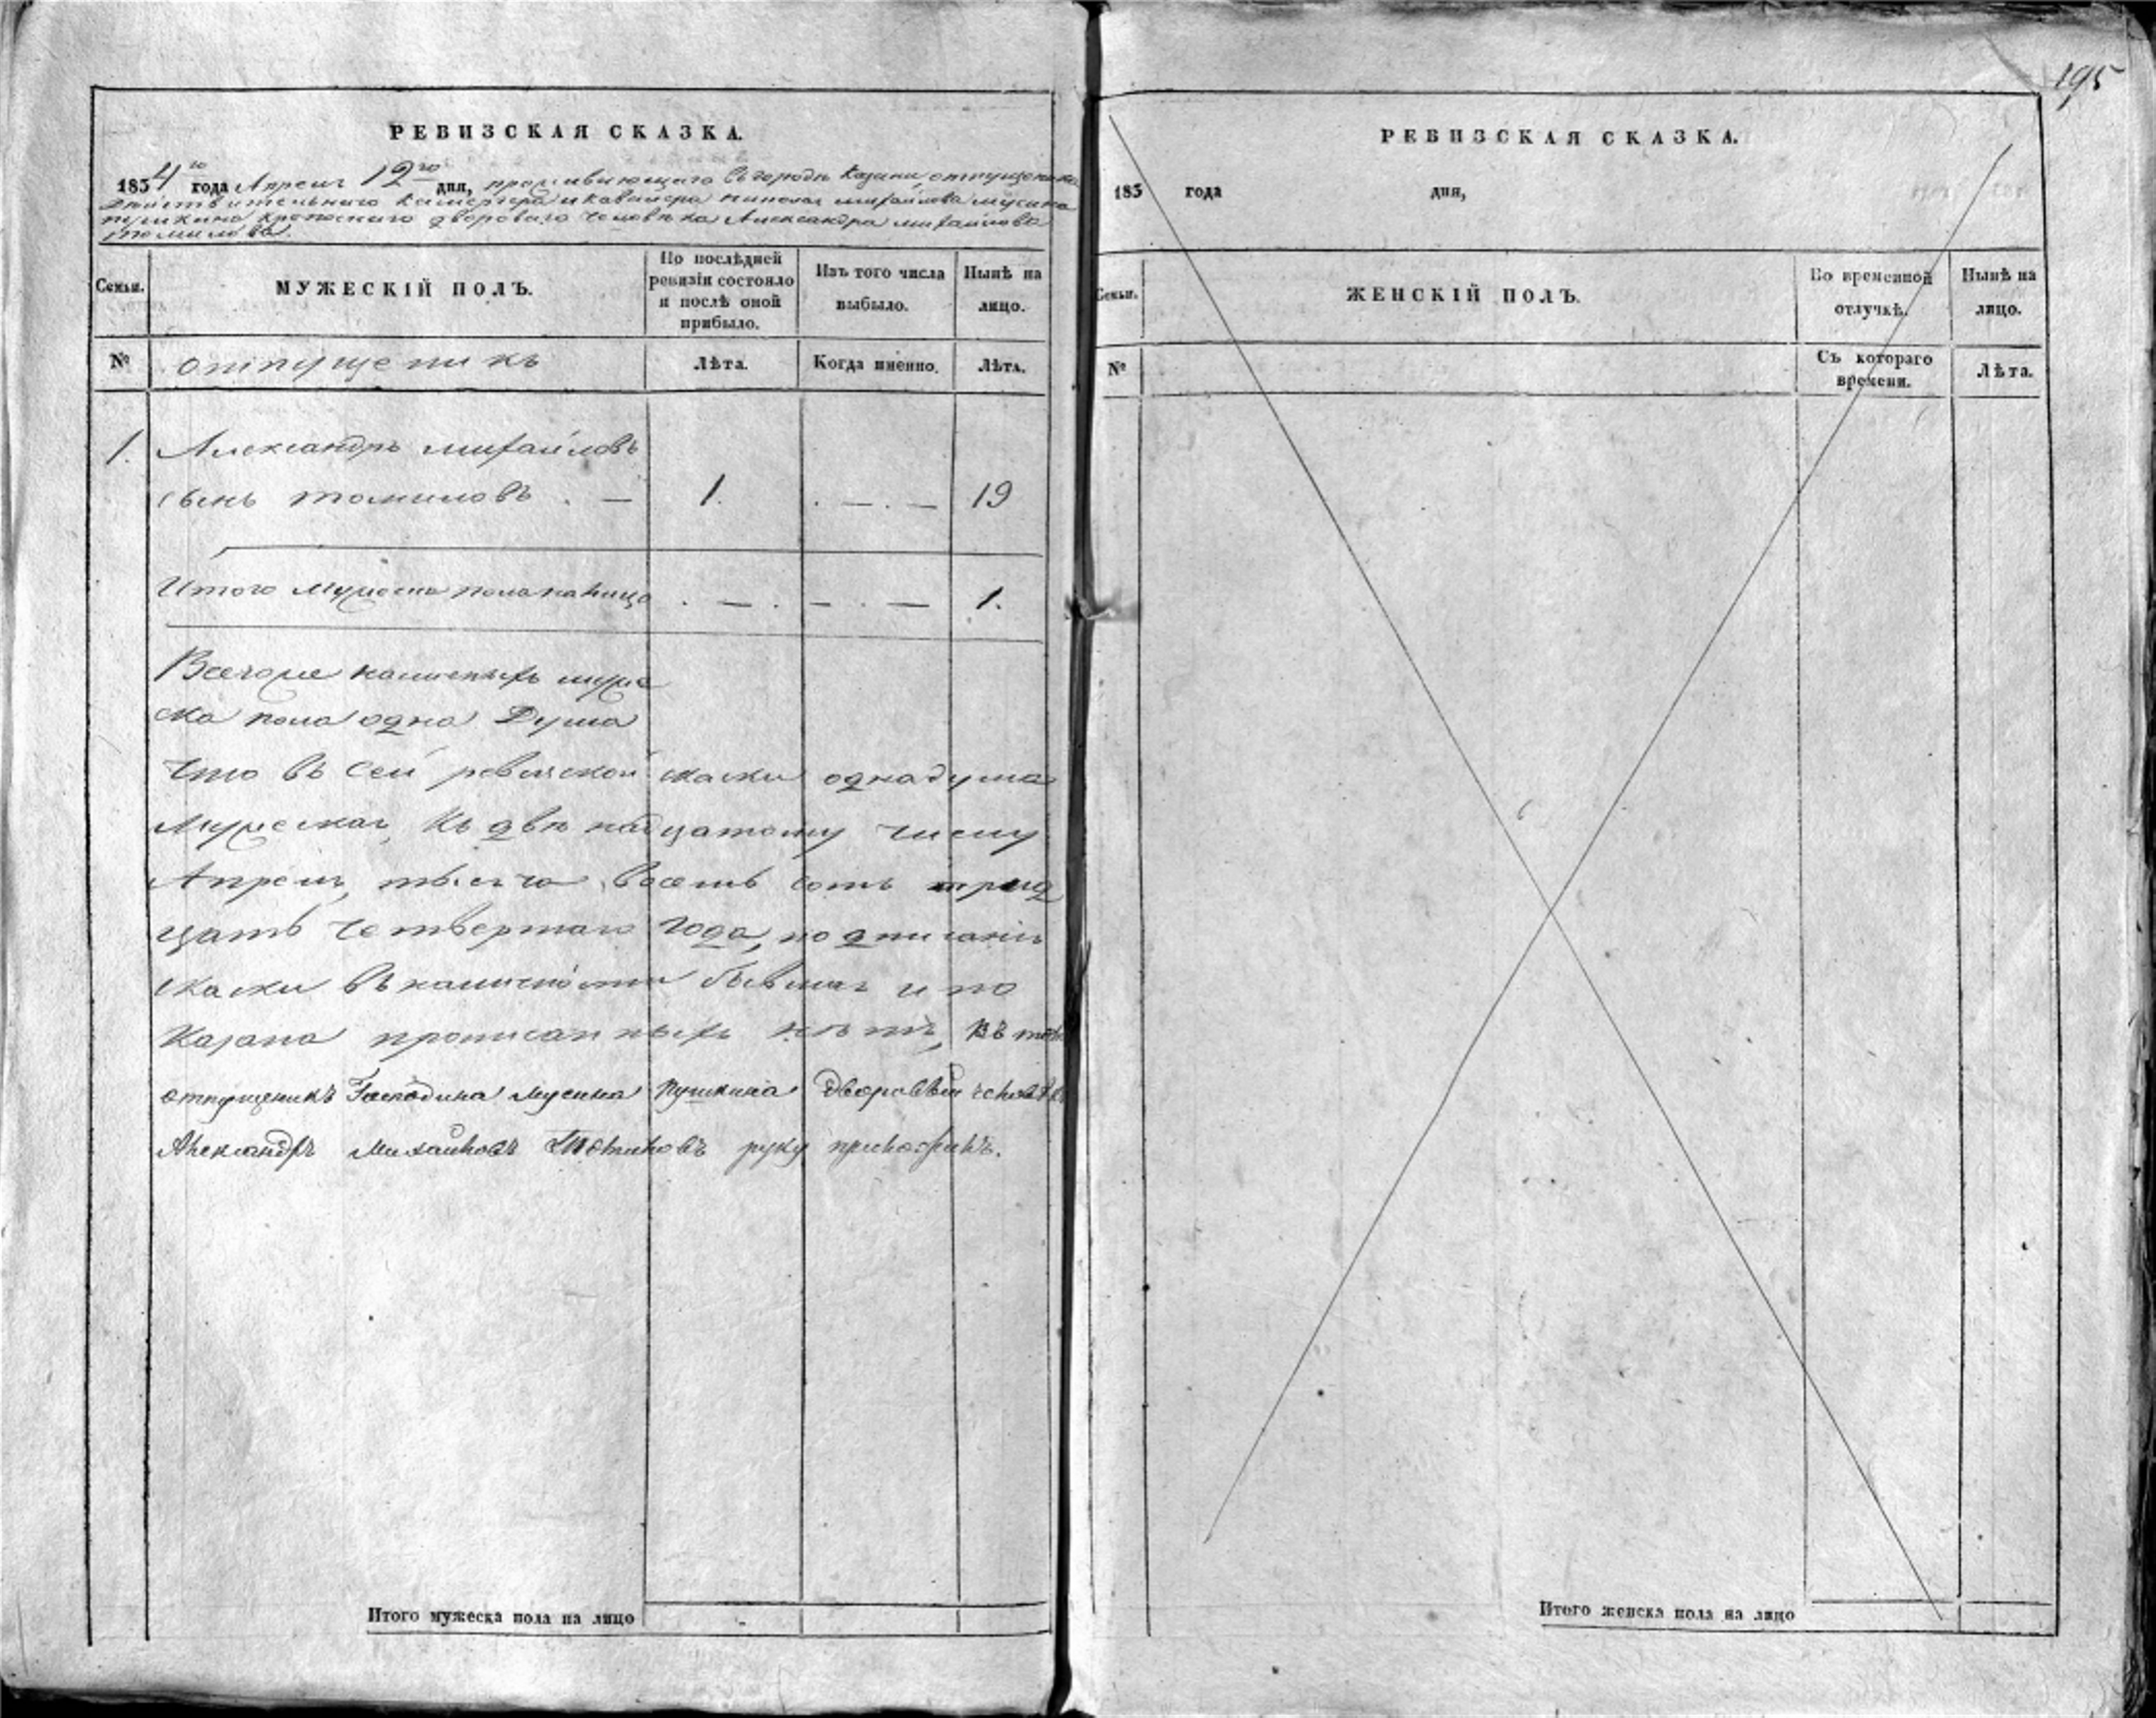 195
РЕВИЗСКАЯ СКАЗКА.
1834го года Апреля 12го дня, проживающаго въ городѣ Казани, отпущеника
Дѣйствительнаго Камергера и Кавалера Николая Михайлова Мусина
пушкина крепоснаго дворового человѣка Александра Михайлова
томилова.
Семьи.
МУЖЕСКІЙ ПОЛЪ.
По послѣдней
ревизіи состояло
и послѣ оной
прибыло.
Изъ того числа
выбыло.
Нынѣ на
лицо.
№
отпущеникъ
Лѣта.
Когда именно.
Лѣта.
1. Александръ Михайловъ
сынъ томиловъ . — 1. . — . — 19
Итого мужеска пола налицо . — . — . — 1.
Всегоже наличныхъ муже
ска пола одна Душа
Что въ сей ревиской скаски одна душа
Мужеская, Къ двѣнадцатому числу
Апреля, тысяча восемь сотъ трид
цать четвертаго года, по дписанія
скаски въ наличности бывшая и по
казана прописанныхъ нѣтъ, Въ том
отпущеникъ Господина Мусина Пушкина Дворовый человѣкъ
Александръ Михайловъ Томиловъ руку приложилъ.
Итого мужеска пола на лицо
РЕВИЗСКАЯ СКАЗКА.
183 года дня,
Семьи.
ЖЕНСКІЙ ПОЛЪ.
Во временной
отлучкѣ.
Нынѣ на
лицо.
№
Съ котораго
времени.
Лѣта.
Итого женска пола на лицо